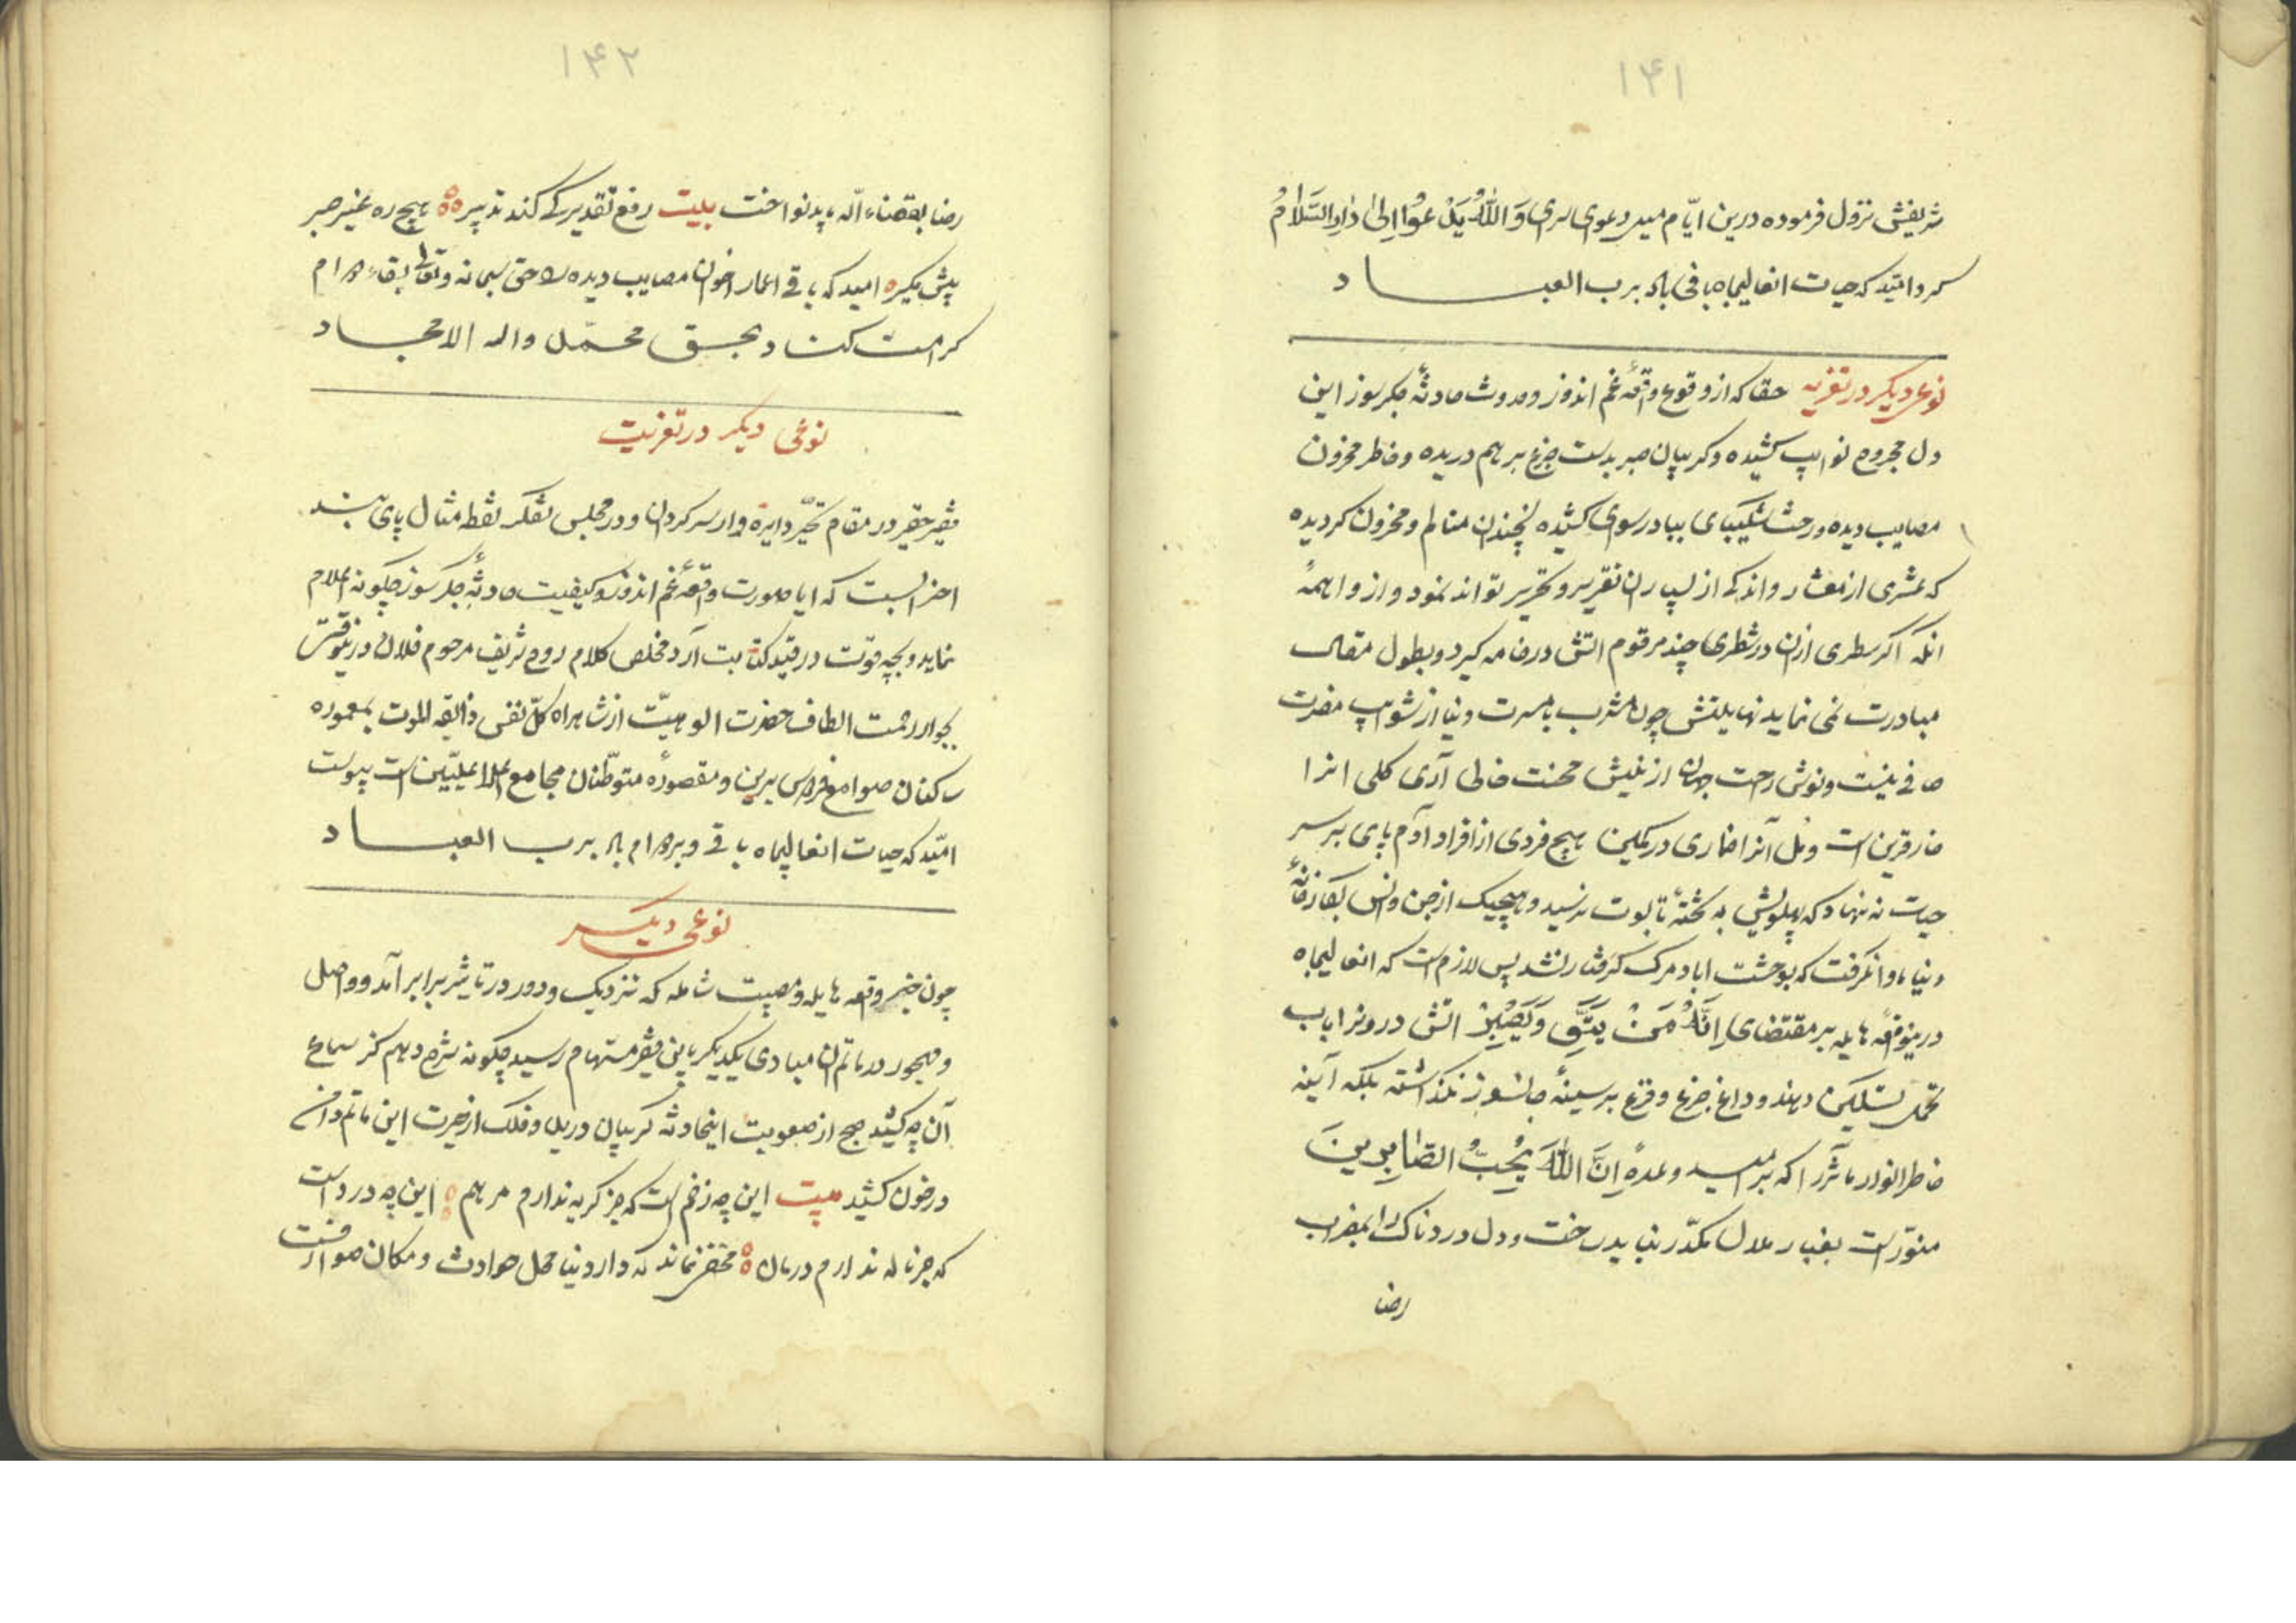 ۱۴۱
شریفش نزول فرموده درین ایّام میرد دعوی وَاللّٰهُ یَدْعُوا اِلیٰ دَارِالسَّلَامُ
کرد امیّد که حیات انعالیجاه باقی باد برب العباد
نوعی دیکر در تعزیه حقا که از وقوع واقعهٔ غم اندوز و حدوث حادثهٔ جکرسوز این
دل مجروح نوایب کشیده و کریبان صبر بدست جزع بر هم دریده و خاطر محزون
مصایب دیده و رخت شکیبای بباد رسوی کشیده نچندان متالم و محزون کردیده
که عشری از معشار و اندکی از بسیار ان تقریر و تحریر تواند نمود و از واهمهٔ
انکه اکر سطری ازان در شطری چند مرقوم اتش در خامه کیرد و بطول مقال
مبادرت نمی نماید نهایتش چون مشرب با مسرت دنیا از شوایب مضرت
صافی نیست و نوش راحت جهان از نیش محنت خالی آری کلی انرا
خار قرین است و مل آنرا خماری در کمین هیچ فردی از افراد آدم پای بر سر
حیات ننهاد که پهلویش به تختهٔ تابوت نرسید و هیچیک از جن و انس بکازخانهٔ
دنیا ماوا نکرفت که بوحشت اباد مرک کرفتار نشد پس لازم است که انعالیجاه
درینواقعه هایله بر مقتضای اِنَّهُ مَنْ یَتَّقِ وَیَصْبِرْ اتش درونرا باب
تحمل تسکین دهند و داغ جزع و فزع بر سینهٔ جانسوز نکذاشته بلکه آینه
خاطر انوار ماثر را که بر امید وعدهٔ اِنَّ اللّٰهَ یُحِبُّ الصَّابِرِینَ
منوّر است بغبار ملال مکدّر نباید ساخت و دل دردناک را بمضراب
رضا
۱۴۲
رضا بقضاء اله باید نواخت بیت رفع تقدیر کی کند تدبیر هیچ ره غیر صبر
پیش مکیر امید که باقی اعمار اخوان مصایب دیده را حق سبحانه وتعالی بقاء دوام
کرامت کناد بحق محمّد واله الامجاد
نوعی دیکر در تعزیت
فقیر حقیر در مقام تحیّر دایره وار سرکردان و در مجلس تفکر نقطه مثال پای بند
احزانست که ایا صورت واقعهٔ غم اندوز و کیفیت حادثهٔ جکرسوز چکونه اعلام
نماید و بچه قوت در قید کتابت آرد مخلص کلام روح شریف مرحوم فلان درینوقت
بجوار رحمت الطاف حضرت الوهیّت از شاهراه کلّ نفس ذائقه الموت بمعموره
ساکنان صوامع فردوس برین و مقصورهٔ متوطّنان مجامع اعلا علیّین است پیوست
امیّد که حیات انعالیجاه باقی و بر دوام باد برب العباد
نوعی دیکر
چون خبر وقعه هایله و مصیبت شامله که نزدیک و دور در تاثیر برابر آمد و واصل
و مهجور در ماتم ان مبادی یکدیکر باین فقیر مستهام رسید چکونه شرح دهم کز سماع
آن چه کشید صبح از صعوبت اینحادثه کریبان درید و فلک از حیرت این ماتم دامن
در خون کشید بیت این چه زخم است که جز کریه ندارم مرهم این چه درد است
که جز ناله ندارم درمان مخفی نماند که دار دنیا محل حوادث و مکان صوارفست